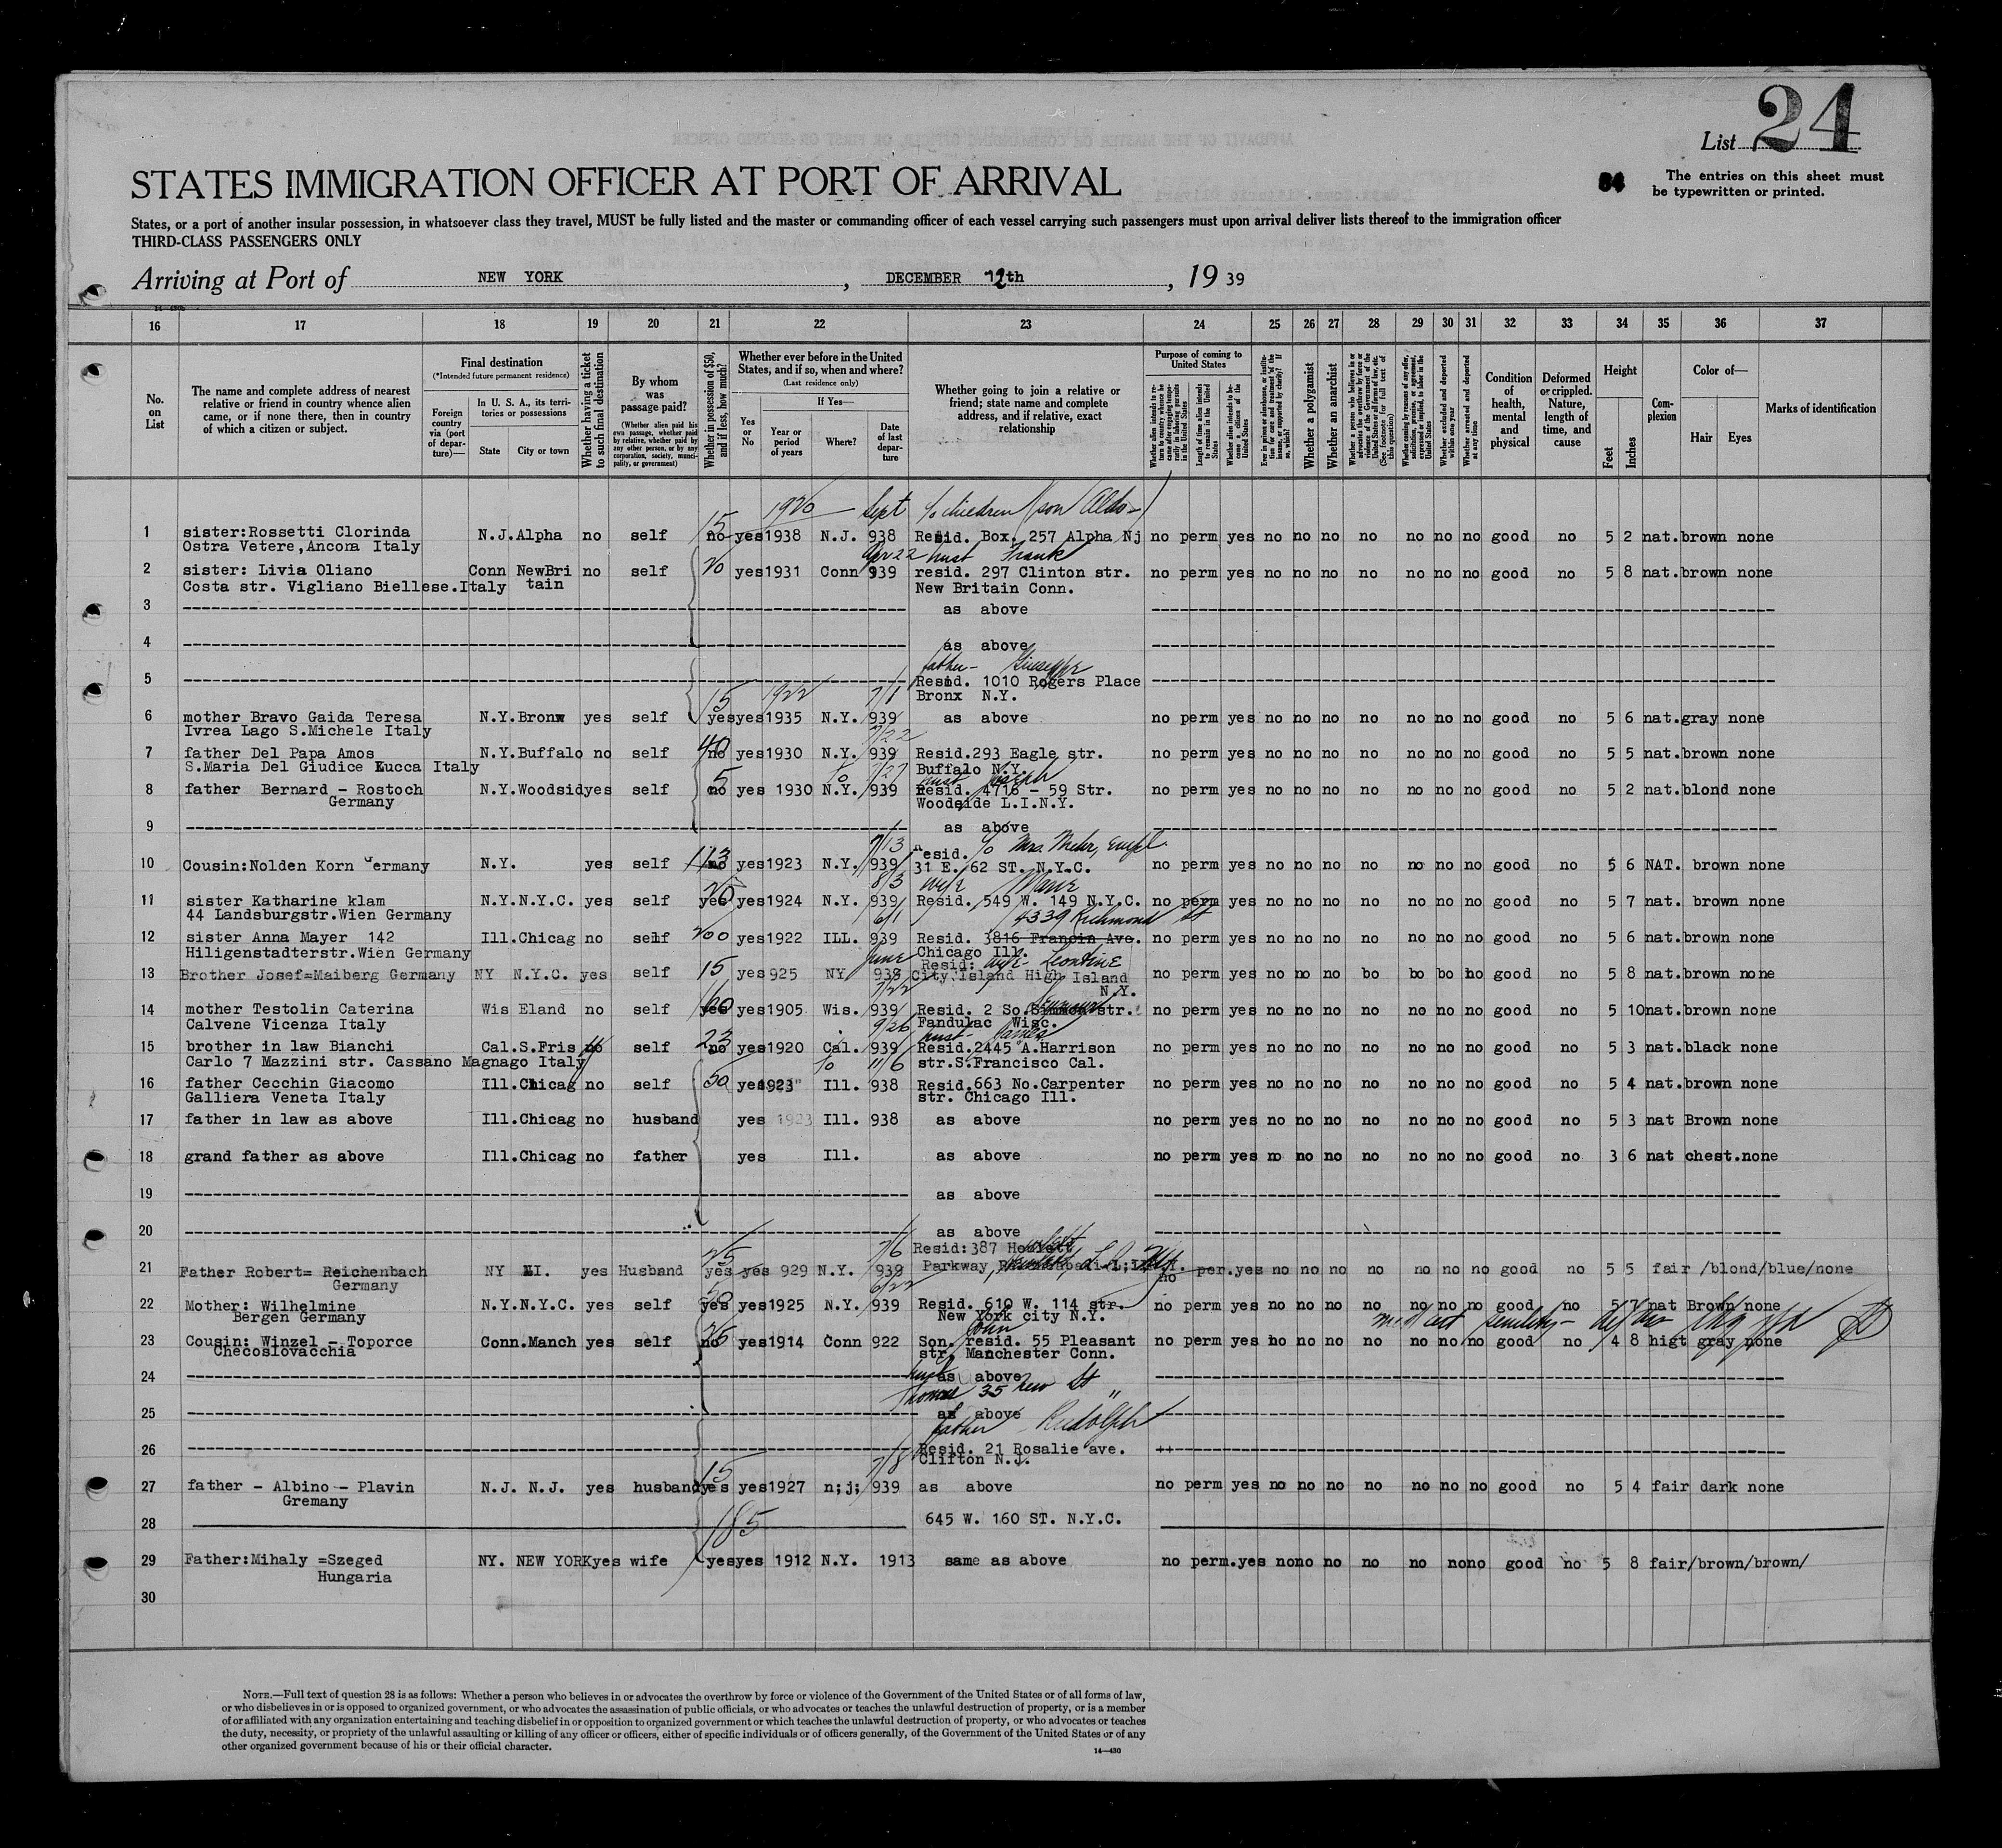 List 24
STATES IMMIGRATION OFFICER AT PORT OF ARRIVAL
84
The entries on this sheet must be typewritten or printed.
States, or a port of another insular possession, in whatsoever class they travel, MUST be fully listed and the master or commanding officer of each vessel carrying such passengers must upon arrival deliver lists thereof to the immigration officer
THIRD-CLASS PASSENGERS ONLY
Arriving at Port of NEW YORK, DECEMBER 12th, 19 39
16 17 18 19 20 21 22 23 24 25 26 27 28 29 30 31 32 33 34 35 36 37
No. on List
The name and complete address of nearest relative or friend in country whence alien came, or if none there, then in country of which a citizen or subject.
Final destination
(*Intended future permanent residence)
Foreign country via (port of departure)—
In U. S. A., its territories or possessions
State City or town
Whether having a ticket to such final destination
By whom was passage paid?
(Whether alien paid his own passage, whether paid by relative, whether paid by any other person, or by any corporation, society, municipality, or government)
Whether in possession of $50, and if less, how much?
Whether ever before in the United States, and if so, when and where?
(Last residence only)
Yes or No
If Yes—
Year or period of years
Where?
Date of last departure
Whether going to join a relative or friend; state name and complete address, and if relative, exact relationship
Purpose of coming to United States
Whether alien intends to return to country whence he came after engaging temporarily in laboring pursuits in the United States
Length of time alien intends to remain in the United States
Whether alien intends to become a citizen of the United States
Ever in prison or almshouse, or institution for care and treatment of the insane, or supported by charity? If so, which?
Whether a polygamist
Whether an anarchist
Whether a person who believes in or advocates the overthrow by force or violence of the Government of the United States or all forms of law, etc. (See footnote for full text of this question)
Whether coming by reasons of any offer, solicitation, promise, or agreement, expressed or implied, to labor in the United States
Whether excluded and deported within one year
Whether arrested and deported at any time
Condition of health, mental and physical
Deformed or crippled. Nature, length of time, and cause
Height
Feet Inches
Complexion
Color of—
Hair Eyes
Marks of identification
1920 Sept % children (son Aldo-)
1 sister:Rossetti Clorinda N.J. Alpha no self 15 no yes 1938 N.J. 938 Resid. Box. 257 Alpha Nj no perm yes no no no no no no no good no 5 2 nat. brown none
Ostra Vetere,Ancona Italy
Apr 22 hust Frank
2 sister: Livia Oliano Conn NewBri no self 20 yes 1931 Conn 939 resid. 297 Clinton str. no perm yes no no no no no no no good no 5 8 nat. brown none
Costa str. Vigliano Biellese.Italy tain New Britain Conn.
3 as above
4 as above
father- Giuseppe
5 Resid. 1010 Rogers Place
Bronx N.Y.
15 1922 7/1
6 mother Bravo Gaida Teresa N.Y. Bronx yes self yes yes 1935 N.Y. 939 as above no perm yes no no no no no no no good no 5 6 nat. gray none
Ivrea Lago S.Michele Italy
7/22
7 father Del Papa Amos N.Y. Buffalo no self 40 no yes 1930 N.Y. 939 Resid.293 Eagle str. no perm yes no no no no no no no good no 5 5 nat. brown none
S.Maria Del Giudice Lucca Italy Buffalo N.Y.
5 to 7/27 hust Joseph
8 father Bernard - Rostoch N.Y. Woodsid yes self no yes 1930 N.Y. 939 Resid. 4716 - 59 Str. no perm yes no no no no no no no good no 5 2 nat. blond none
Germany Woodside L.I.N.Y.
9 as above
7/13 Resid. % Mrs. Mehr, empl.
10 Cousin:Nolden Korn Germany N.Y. yes self 113 no yes 1923 N.Y. 939 31 E. 62 ST. N.Y.C. no perm yes no no no no no no no good no 5 6 NAT. brown none
8/3 wife Marie
11 sister Katharine klam N.Y. N.Y.C. yes self 20 yes yes 1924 N.Y. 939 Resid. 549 W. 149 N.Y.C. no perm yes no no no no no no no good no 5 7 nat. brown none
44 Landsburgstr.Wien Germany
6/1 4339 Richmond St
12 sister Anna Mayer 142 Ill. Chicag no self 200 yes 1922 ILL. 939 Resid. 3816 Francin Ave. no perm yes no no no no no no no good no 5 6 nat. brown none
Hiligenstadterstr.Wien Germany Chicago Ill.
June Resid: wife- Leontine
13 Brother Josef=Maiberg Germany NY N.Y.C. yes self 15 yes 925 NY 939 City Island High Island no perm yes no no no bo bo bo ho good no 5 8 nat. brown none
N.Y.
7/22
14 mother Testolin Caterina Wis Eland no self 60 yes yes 1905 Wis. 939 Resid. 2 So. str. no perm yes no no no no no no no good no 5 10 nat. brown none
Calvene Vicenza Italy Fandulac Wisc.
9/26 hust-
15 brother in law Bianchi Cal. S.Fris no self 23 no yes 1920 Cal. 939 Resid.2445 A.Harrison no perm yes no no no no no no no good no 5 3 nat. black none
Carlo 7 Mazzini str. Cassano Magnago Italy str.S.Francisco Cal.
to 11/6
16 father Cecchin Giacomo Ill. Chicag no self 50 yes 1923 Ill. 938 Resid.663 No.Carpenter no perm yes no no no no no no no good no 5 4 nat. brown none
Galliera Veneta Italy str. Chicago Ill.
17 father in law as above Ill. Chicag no husband yes 1923 Ill. 938 as above no perm yes no no no no no no no good no 5 3 nat Brown none
18 grand father as above Ill. Chicag no father yes Ill. as above no perm yes no no no no no no no good no 3 6 nat chest. none
19 as above
20 as above
25 7/6 Resid:387 Hewlett
21 Father Robert= Reichenbach NY LI. yes Husband yes yes 929 N.Y. 939 Parkway, no per. yes no no no no no no no good no 5 5 fair /blond/blue/none
Germany
50 6/22
22 Mother: Wilhelmine N.Y. N.Y.C. yes self yes yes 1925 N.Y. 939 Resid. 610 W. 114 str. no perm yes no no no no no no no good no 5 7 nat Brown none
Bergen Germany New York city N.Y.
John med cert senility-
23 Cousin: Winzel - Toporce Conn. Manch yes self 25 no yes 1914 Conn 922 Son. resid. 55 Pleasant no perm yes no no no no no no no good no 4 8 higt gray none
Checoslovacchia str. Manchester Conn.
24 as above
Thomas 35 New St "
25 as above
father - Rudolph
26 Resid. 21 Rosalie ave. ++
Clifton N.J.
15 7/8
27 father - Albino - Plavin N.J. N.J. yes husband yes yes 1927 n;j; 939 as above no perm yes no no no no no no no good no 5 4 fair dark none
Gremany
28 185 645 W. 160 ST. N.Y.C.
29 Father:Mihaly =Szeged NY. NEW YORK yes wife yes yes 1912 N.Y. 1913 same as above no perm. yes no no no no no no no good no 5 8 fair/brown/brown/
Hungaria
30
NOTE.—Full text of question 28 is as follows: Whether a person who believes in or advocates the overthrow by force or violence of the Government of the United States or of all forms of law,
or who disbelieves in or is opposed to organized government, or who advocates the assassination of public officials, or who advocates or teaches the unlawful destruction of property, or is a member
of or affiliated with any organization entertaining and teaching disbelief in or opposition to organized government or which teaches the unlawful destruction of property, or who advocates or teaches
the duty, necessity, or propriety of the unlawful assaulting or killing of any officer or officers, either of specific individuals or of officers generally, of the Government of the United States or of any
other organized government because of his or their official character.
14—430